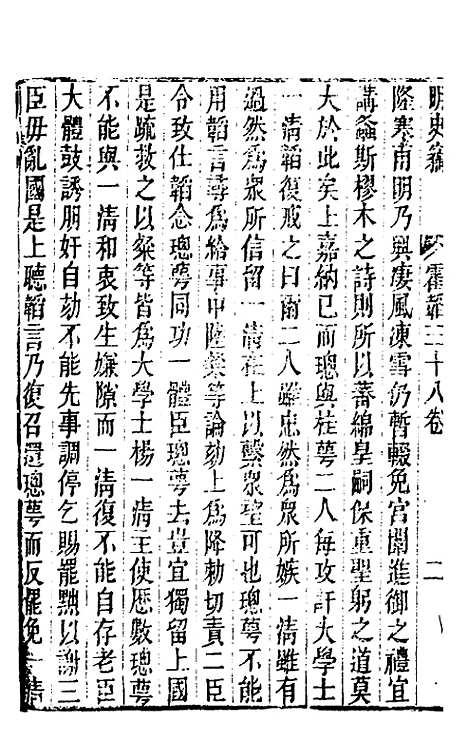 明史竊 霍韜三十八卷 二
隆寒甫明乃興凄風凍雪仍暫輟免宮闈進御之禮宜
講螽斯樛木之詩則所以蕃綿皇嗣保重聖躬之道莫
大於此矣上嘉納已而璁與桂萼二人每攻訐大學士
一清韜復戒之曰爾二人雖忠然為眾所嫉一清雖有
過然為眾所信留一清在上以繫眾望可也璁萼不能
用韜言尋為給事中陸粲等論劾上為降勅切責二臣
令致仕韜念璁萼同功一體臣璁萼去豈宜獨留上國
是疏救之以粲等皆為大學士楊一清主使歷數璁萼
不能與一清和衷致生嫌隙而一清復不能自存老臣
大體鼓誘朋奸自劾不能先事調停乞賜罷黜以謝三
臣毋亂國是上聽韜言乃復召還璁萼而反罷免一清